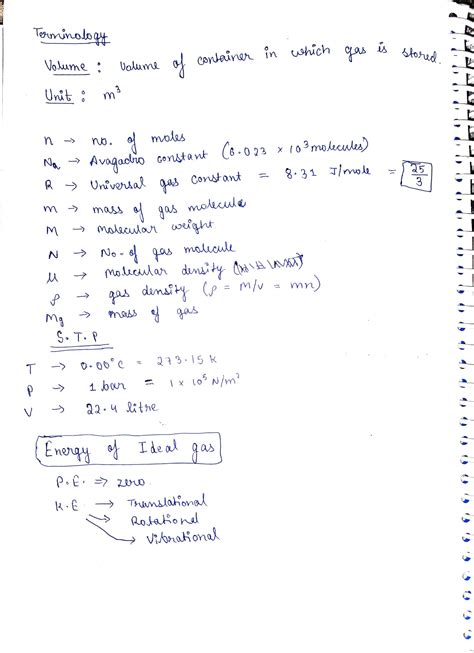 Terminology
Volume : Volume of container in which gas is stored.
Unit : m³
n → no. of moles
Na → Avagadro constant (6.023 × 10³ molecules)
R → Universal gas constant = 8.31 J/mole = 25/3
m → mass of gas molecule
M → molecular weight
N → No. of gas molecule
μ → molecular density
ρ → gas density (ρ = m/v = mn)
Mg → mass of gas
S.T.P
T → 0.00°C = 273.15 K
P → 1 bar = 1 × 10⁵ N/m²
V → 22.4 litre
Energy of Ideal gas
P.E. ⇒ zero.
K.E. → Translational
→ Rotational
→ Vibrational